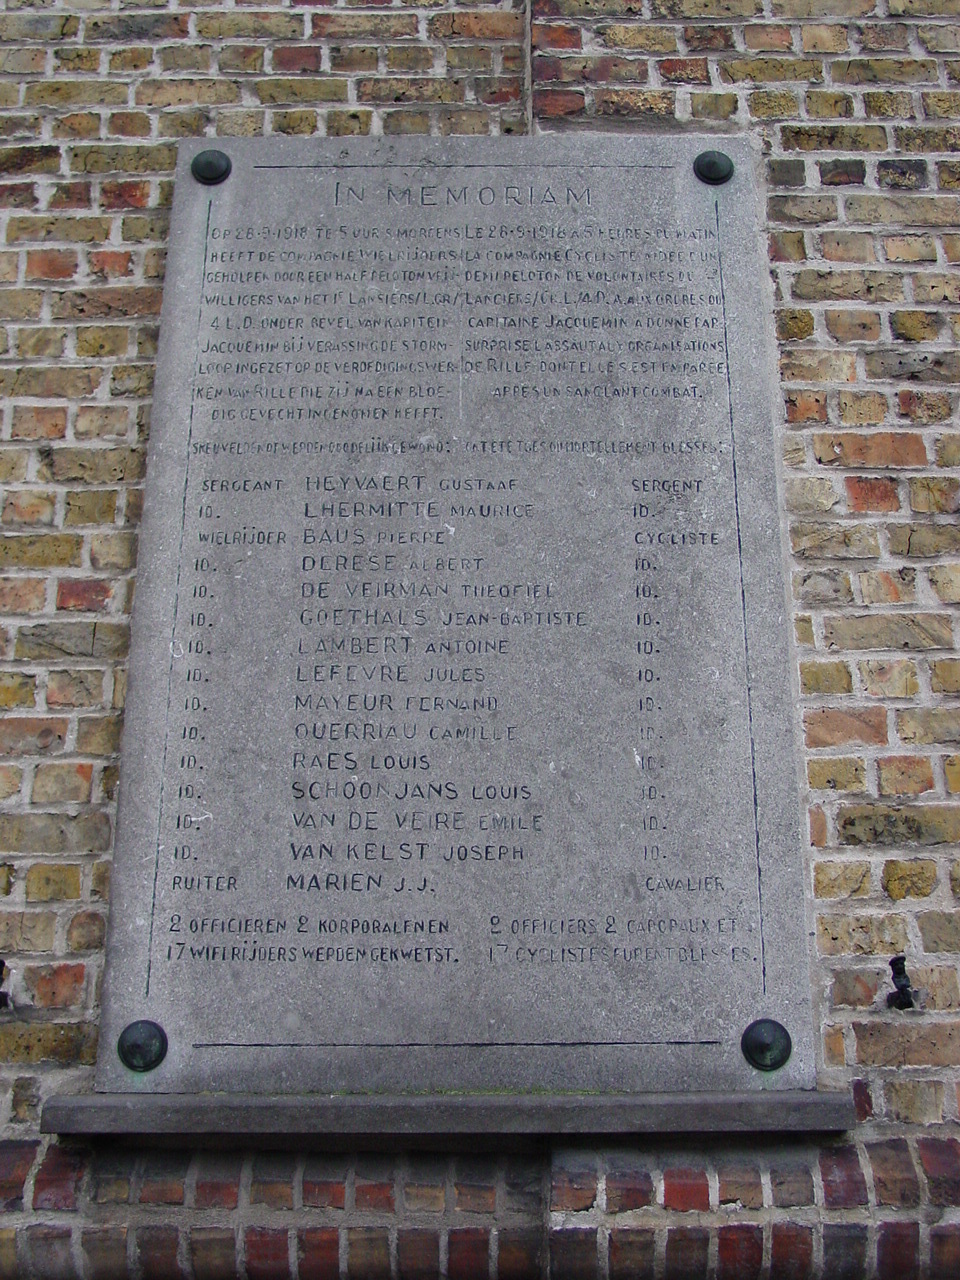 IN MEMORIAM
OP 28·9·1918 TE 5 UUR S MORGENS LE 28·9·1918 A 5 HEURES DU MATIN
HEEFT DE COMPAGNIE WIELRIJDERS LA COMPAGNIE CYCLISTE AIDEE D'UN
GEHOLPEN DOOR EEN HALF PELOTON VRIJ- DEMI PELOTON DE VOLONTAIRES DU 1
WILLIGERS VAN HET LANSIERS/L.GR/ LANCIERS/GR.L./4 D.A. AUX ORDRES DU
4 L.D. ONDER BEVEL VAN KAPITEIN CAPITAINE JACQUEMIN A DONNE PAR
JACQUEMIN BIJ VERASSING DE STORM- SURPRISE L ASSAUT AUX ORGANISATIONS
LOOP INGEZET OP DE VERDEDIGINGSWER- DE RILLE DONT ELLE S EST EMPAREE
KEN VAN RILLE DIE ZIJ NA EEN BLOE- APRES UN SANGLANT COMBAT.
DIG GEVECHT INGENOMEN HEEFT.
SNEUVELDEN OF WERDEN DOODELIJK GEWOND: ONT ETE TUES OU MORTELLEMENT BLESSES:
SERGEANT HEYVAERT GUSTAAF SERGENT
ID. LHERMITTE MAURICE ID.
WIELRIJDER BAUS PIERRE CYCLISTE
ID. DERESE ALBERT ID.
ID. DE VEIRMAN THEOFIEL ID.
ID. GOETHALS JEAN-BAPTISTE ID.
ID. LAMBERT ANTOINE ID.
ID. LEFEVRE JULES ID.
ID. MAYEUR FERNAND ID.
ID. QUERRIAU CAMILLE ID.
ID. RAES LOUIS ID.
ID. SCHOONJANS LOUIS ID.
ID. VAN DE VEIRE EMILE ID.
ID. VAN KELST JOSEPH ID.
RUITER MARIEN J.J. CAVALIER
2 OFFICIEREN 2 KORPORALEN EN 2 OFFICIERS 2 CAPORAUX ET
17 WIELRIJDERS WERDEN GEKWETST. 17 CYCLISTES FURENT BLESSES.